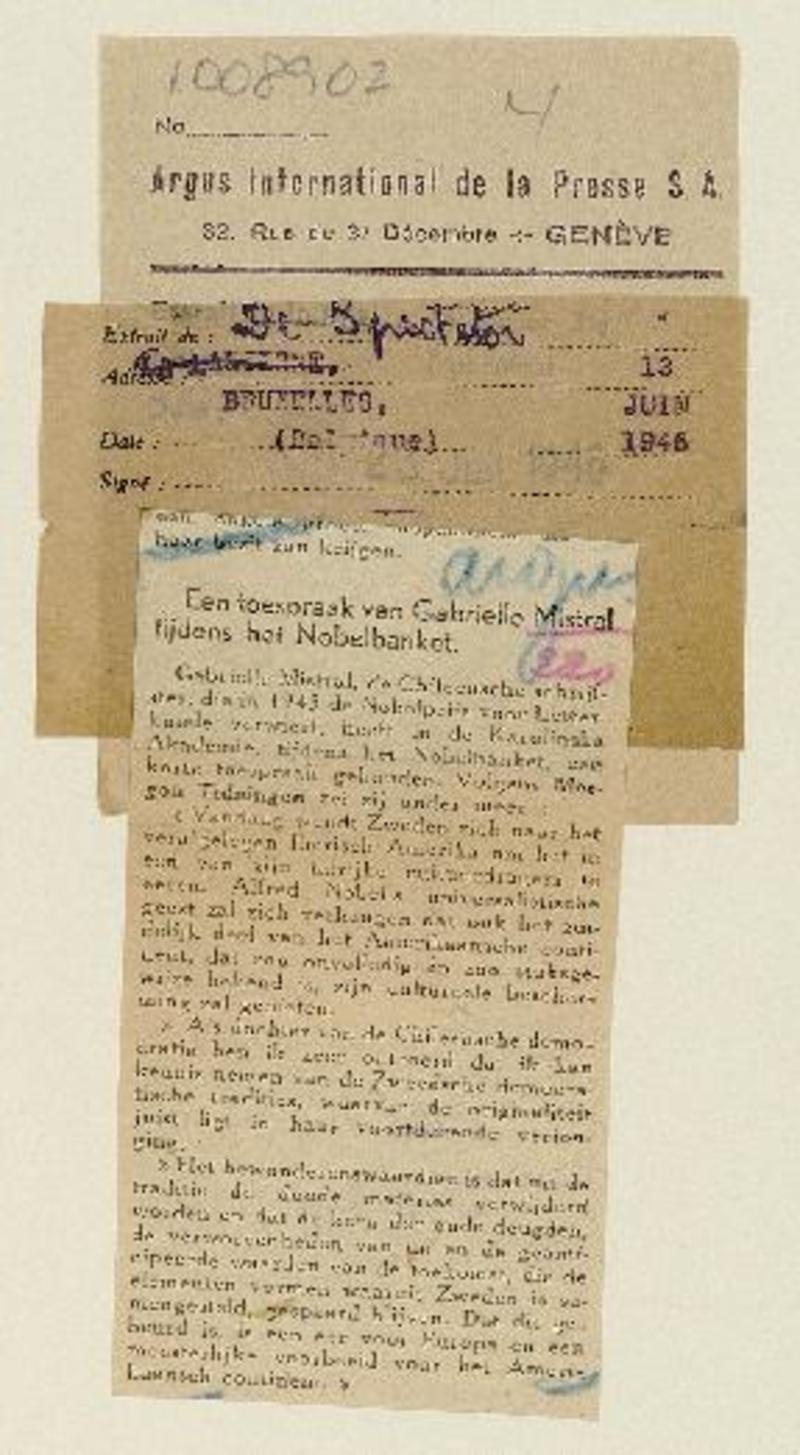 1008902
4
No
Argus International de la Presse S. A.
GENÈVE
Extrait de : De Spectator
Adresse :
13
BRUXELLES,
JUIN
Date : (Belgique)
1946
Signé :
haar heeft zan krijgen.
Een toespraak van Gabrielle Mistral
tijdens het Nobelbanket.
Gabrielle Mistral, de Chileensche schrijf-
ster, die in 1945 de Nobelprijs voor Letter-
kunde verwierf, heeft in de Karolinska
Akademie, tijdens het Nobelbanket, een
korte toespraak gehouden. Volgens Mor-
gon Tidningen zei zij onder meer :
« Vandaag wendt Zweden zich naar het
Amerika om het in
een van zijn talrijke
eeren. Alfred Nobel's universalistische
geest zal zich verheugen dat ook het zui-
delijk deel van het Amerikaansche conti-
nent, dat zoo onvolledig en zoo stuksge-
wijze bekend is, zijn cultureele bescher-
ming zal genieten.
» Als dochter van de Chileensche demo-
cratie ben ik zeer ontroerd dat ik kan
kennis nemen van de Zweedsche democra-
tische traditie, waarvan de originaliteit
juist ligt in haar voortdurende verjon-
ging.
» Het bewonderenswaardige is dat uit de
traditie de doode materies verwijderd
worden en dat de kern der oude deugden,
de verworvenheden van nu en de geanti-
cipeerde waarden van de toekomst, die de
elementen vormen waaruit Zweden is sa-
mengesteld, gespaard blijven. Dat dit ge-
beurd is, is een eer voor Europa en een
meesterlijke voorbeeld voor het Ameri-
kaansch continent. »